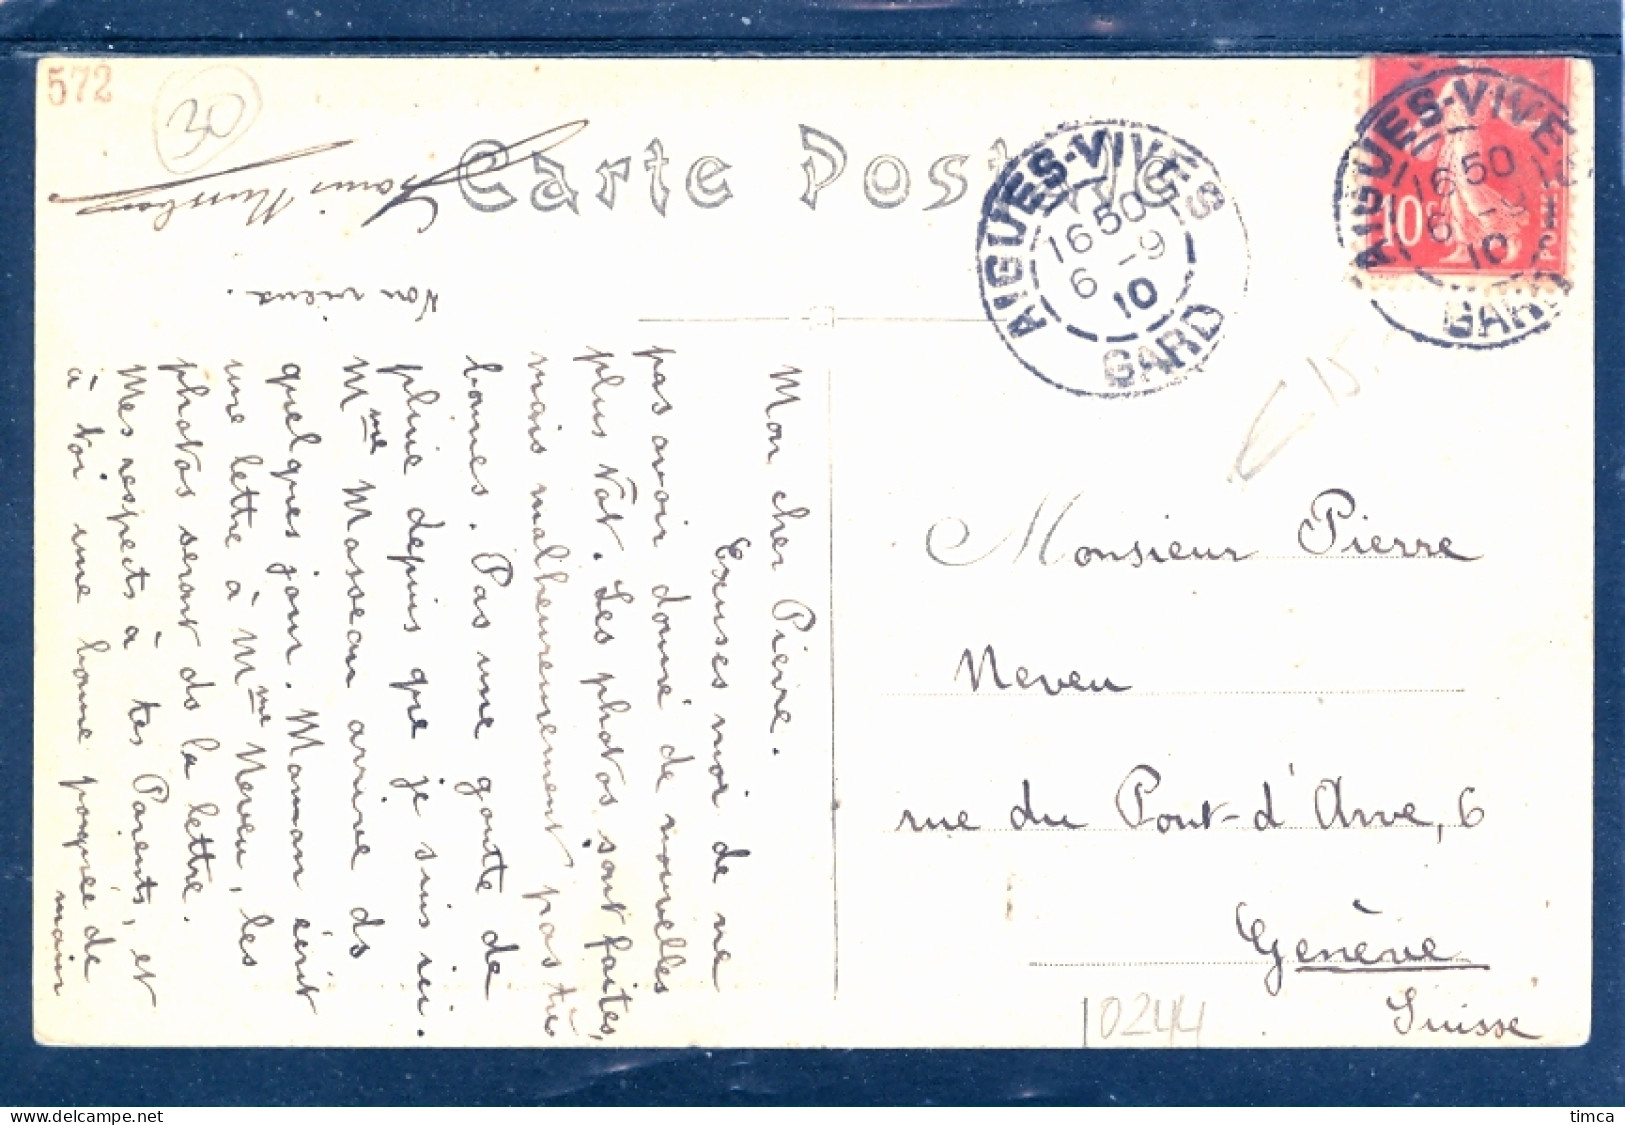 572
30
Carte Postale
AIGUES-VIVES
16 50
6 -9
10
GARD
AIGUES-VIVES
16 50
6 -9
10
GARD
10c
Mon cher Pierre.
Excuses moi de ne
pas avoir donné de nouvelles
plus tôt. Les photos sont faites,
mais malheureusement pas très
bonnes. Pas une goutte de
pluie depuis que je suis ici.
Mme Masseau arrive ds
quelques jour. Maman écrit
une lettre à Mme Neveu, les
photos seront ds la lettre.
Mes respects à tes Parents, et
à toi une bonne poignée de
main
Ton vieux.
Louis
Monsieur Pierre
Neveu
rue du Pont-d'Arve, 6
Genève
Suisse
10244
timca